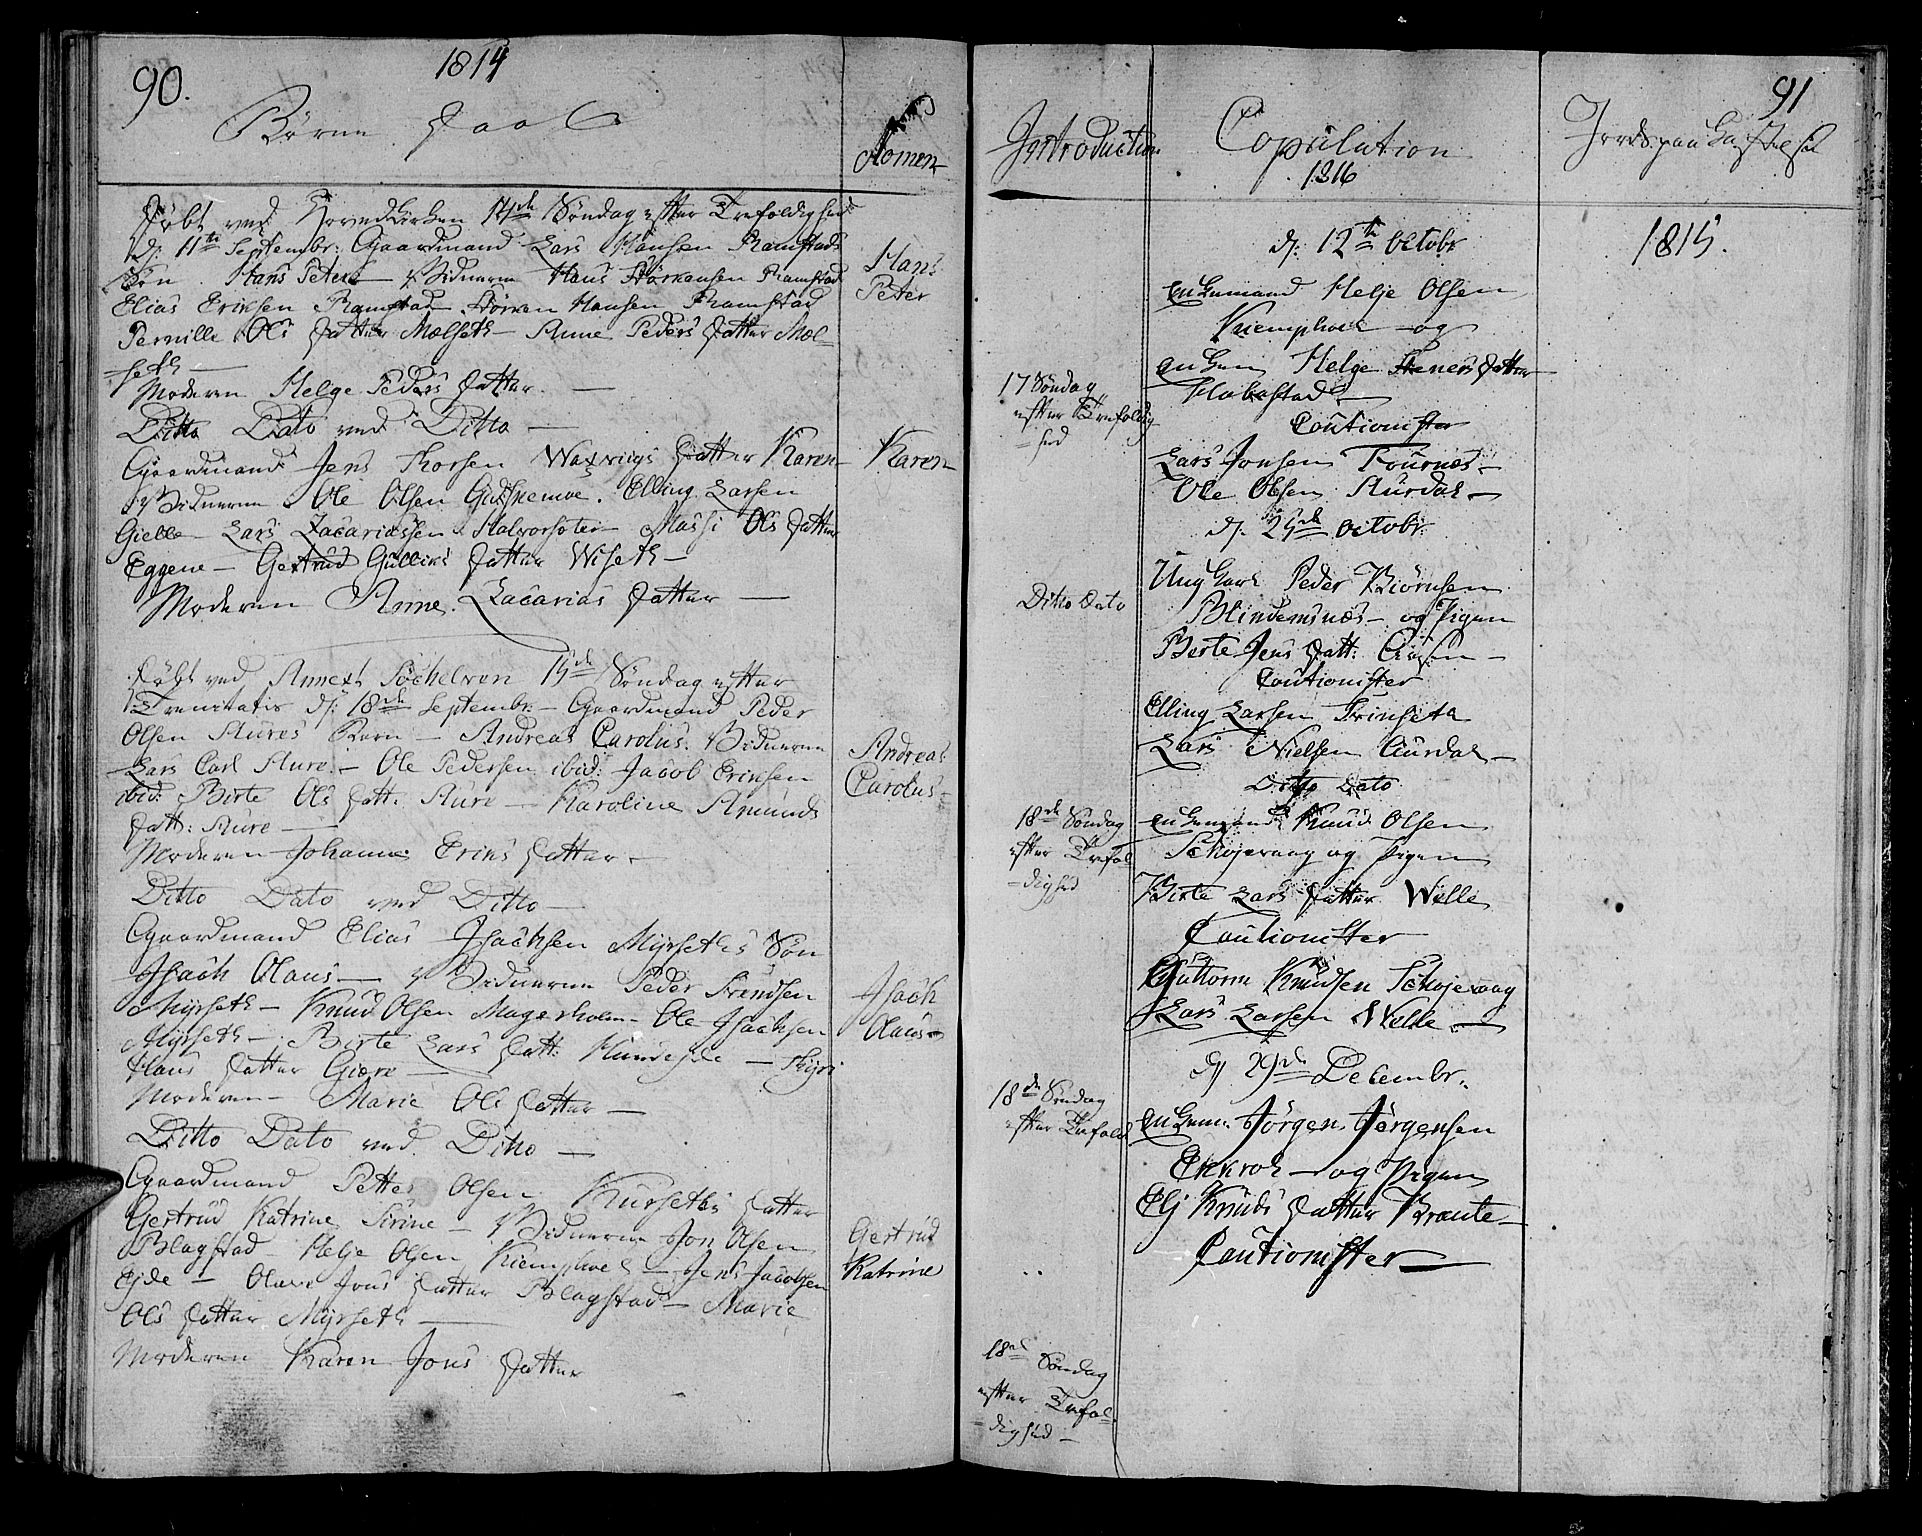 90.
1814
Børne Daab
Nomen
Døbt ved Hovedkirken 14de Søndag efter Trefoldighed
d: 11te Septembr: Gaardmand Lars Hansen Ramstads
Søn Hans Peter – Vidnerne Hans Størkersen Ramstad
Elias Eriksen Ramstad – Hansen Ramstad
Pernille Ols Datter Mælseth – Anne Peders Datter Mæl-
-seth –
Moderen Helge Peders Datter –
Ditto Dato ved Ditto –
Gaardmand Jens Thorsen Datter Karen –
Vidnerne Ole Olsen Elling Larsen
Lars Zacariassen Massi Ols Datter
Eggene – Gertrud Datter Wiseth –
Moderen Anne Zacarias Datter –
Døbt ved Annext Søchelven 15de Søndag efter
Trenitatis d: 18de Septembr – Gaardmand Peder
Olsen Aures Barn – Andreas Carolus. Vidnerne
Lars Carl Aure – Ole Pedersen ibid: Jacob Erinsen
ibid: Birte Ols Datt: Aure – Karoline Amunds
Datt: Aure –
Moderen Johanne Erins Datter –
Ditto Dato ved Ditto –
Gaardmand Elias Isachsen Myrseths Søn
Isach Olaus – Vidnerne Peder
Myrseth – Knud Olsen Magerholm – Ole Isachsen
Myrseth – Birte Lars Datt: Hundejde –
Hans Datter Giære –
Moderen – Marie Ols Datter –
Ditto Dato ved Ditto –
Gaardmand Petter Olsen Kurseths Datter
Gertrud Katrine Sirine – Vidnerne Jon Olsen
Blagstad – Helje Olsen Kiemphoel – Jens Jacobsen
Ejde – Olave Jons Datter Blagstad – Marie
Ols Datter Myrseth –
Moderen Karen Jons Datter
Hans
Peter
Karen
Andreas
Carolus –
Isach
Olaus –
Gertrud
Katrine
91
Introduction
17 Søndag
efter Trefoldig
-hed
Ditto Dato
18de Søndag
efter Trefol
-dighed
18de Søndag
efter Trefold
18de Søndag
efter Trefol
-dighed –
Copulation
1816
d: 12te Octobr
Enkemand Helje Olsen
Kiemphoel – og
Enken Helge Datter
Cautionister
Lars Jonsen Tournes –
Ole Olsen Aurdal –
d: 25de Octobr
Ung Karl Peder Biørnsen
Blindemsnæs – og Pigen
Berte Jens Datt:
Cautionister
Elling Larsen Trinseth
Lars Nielsen Aurdal –
Ditto Dato
Enkemand Knud Olsen
Schojevaag og Pigen
Birte Lars Datter Welle
Cautionister
Guttorm Knudsen Schojevaag
Lars Larsen Welle –
d 29de Decembr.
Enkem. Jørgen Jørgensen
Ekkroh – og Pigen
Elj Knuds Datter Braute –
Cautionister –
Jordspaa Kastelse
1815.